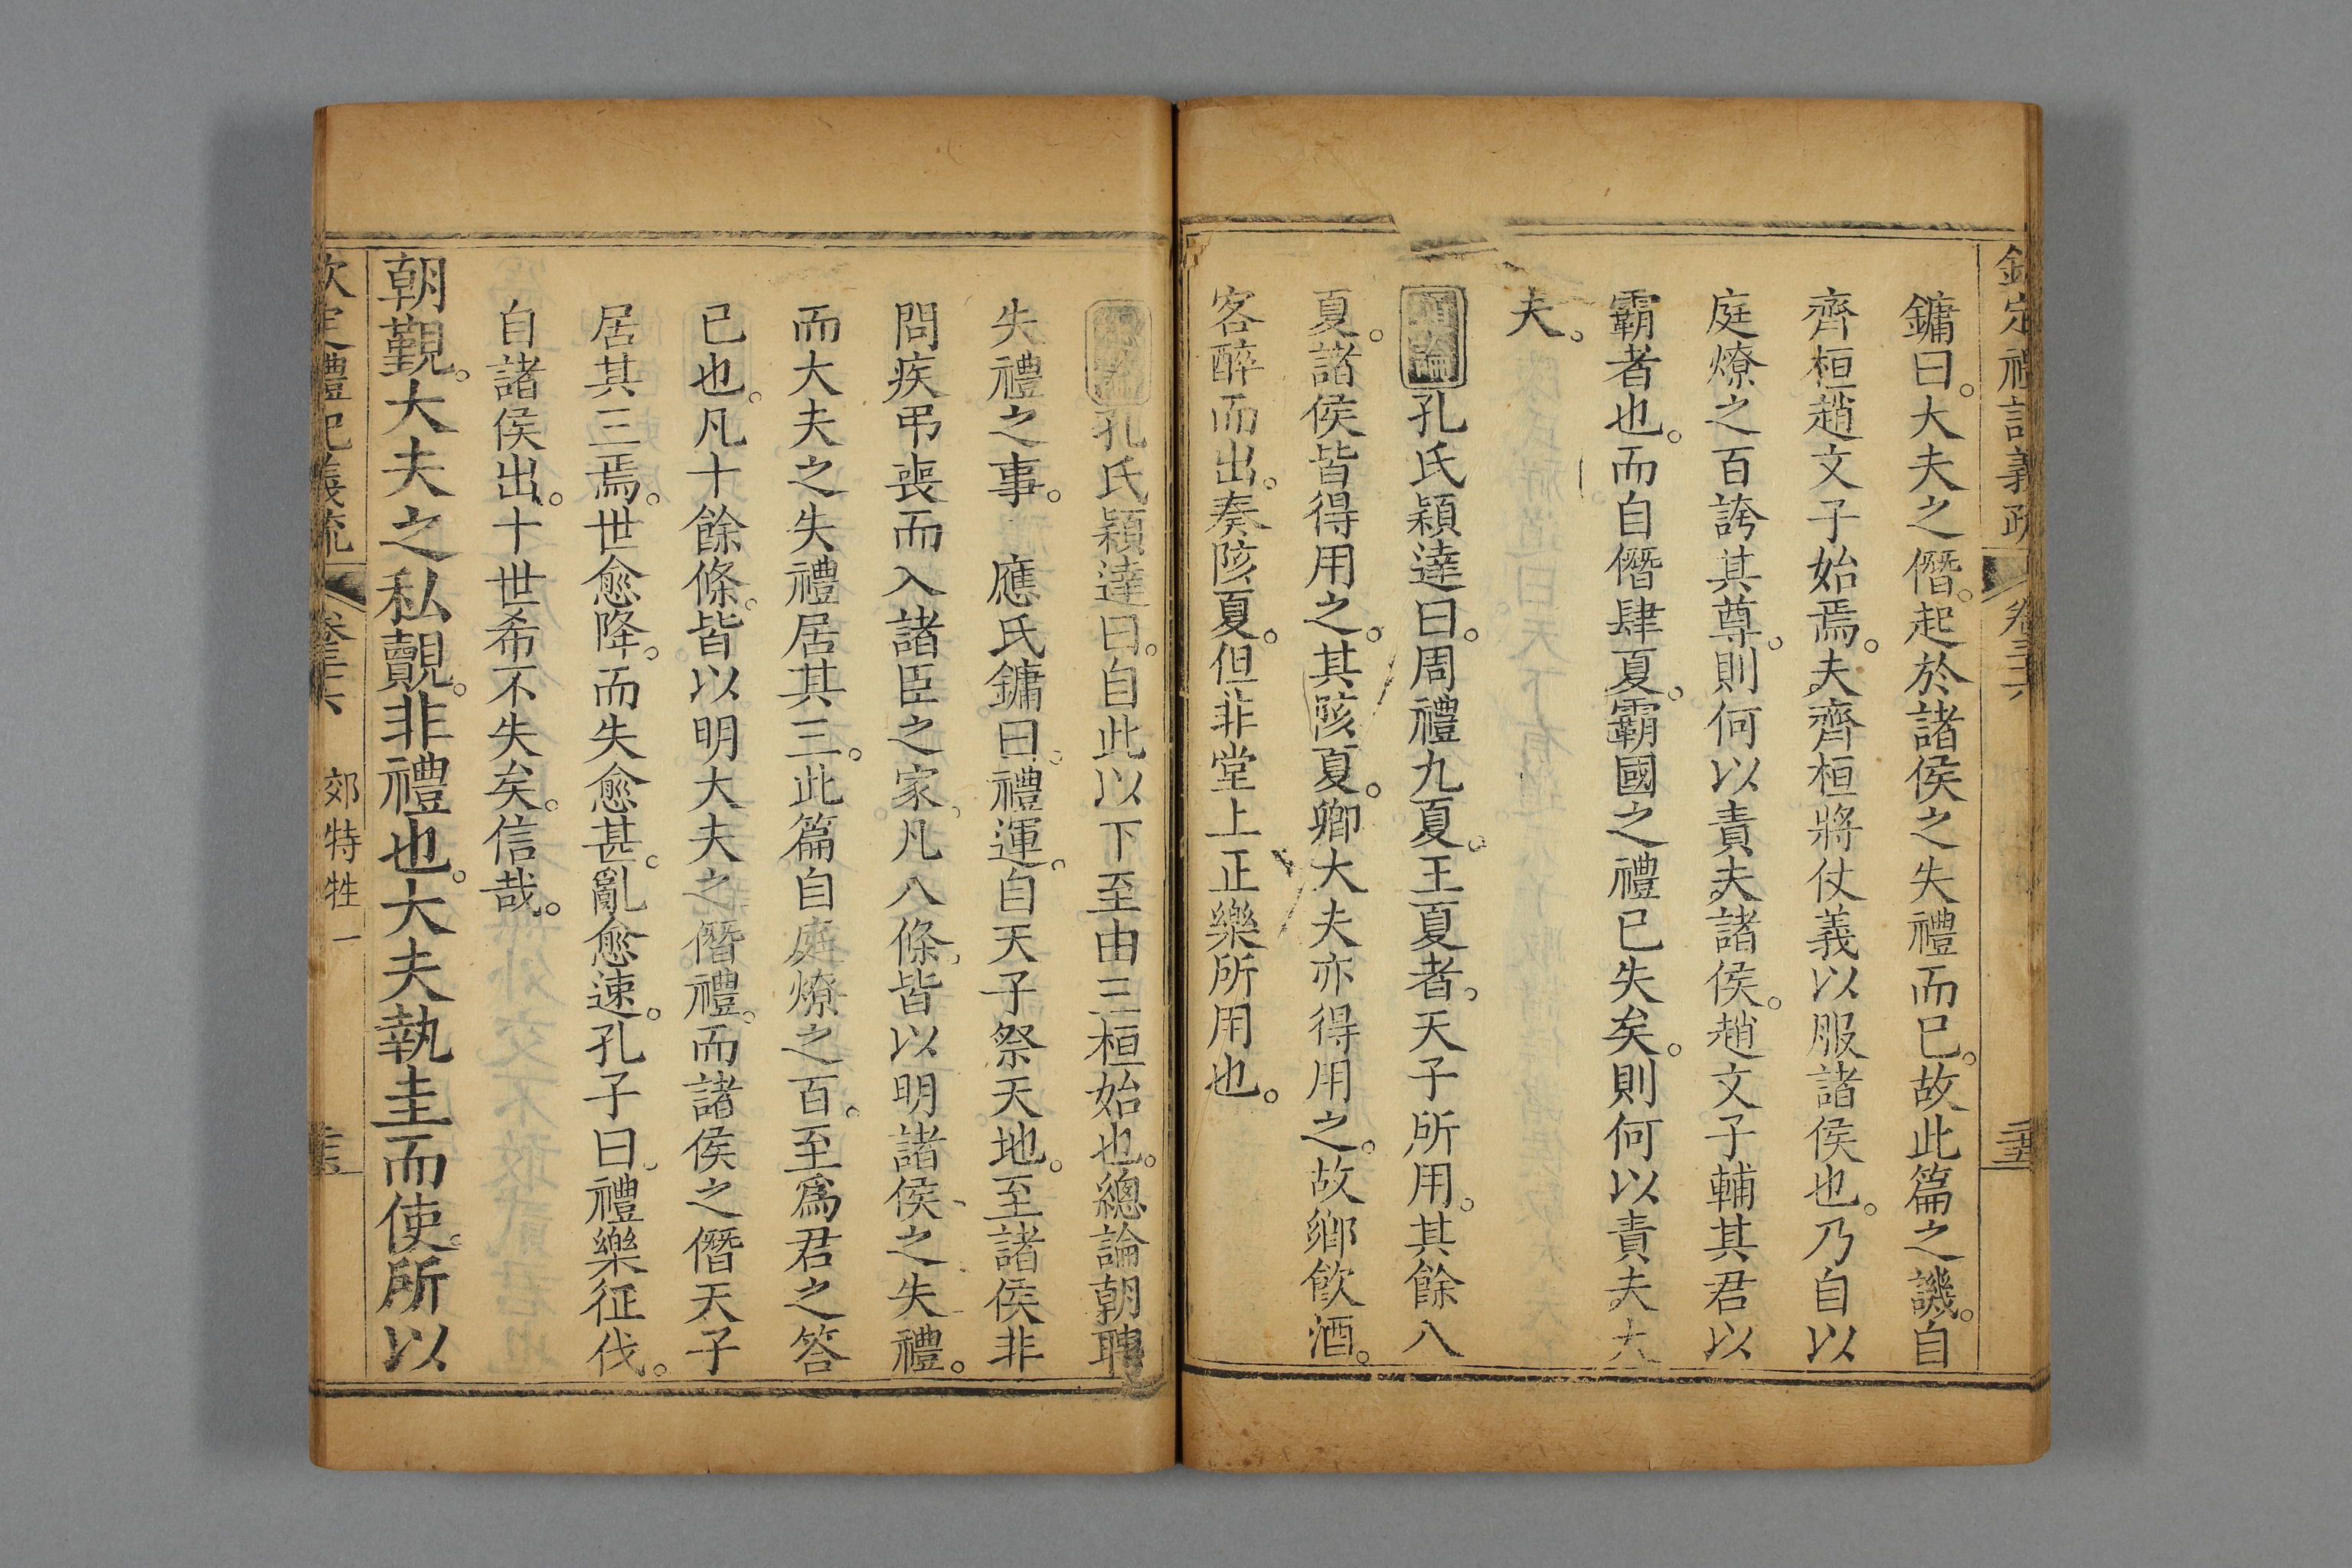 欽定禮記義疏 卷三十六
鏞曰。大夫之僭。起於諸侯之失禮而已。故此篇之譏。自
齊桓趙文子始焉。夫齊桓將仗義以服諸侯也。乃自以
庭燎之百誇其尊。則何以責夫諸侯。趙文子輔其君以
霸者也。而自僭肆夏。霸國之禮已失矣。則何以責夫大
夫。
孔氏穎達曰。周禮九夏。王夏者。天子所用。其餘八
夏。諸侯皆得用之。其陔夏。卿大夫亦得用之。故鄉飲酒。
客醉而出。奏陔夏。但非堂上正樂所用也。
孔氏穎達曰。自此以下至由三桓始也。總論朝聘
失禮之事。 應氏鏞曰。禮運。自天子祭天地。至諸侯非
問疾弔喪而入諸臣之家。凡八條。皆以明諸侯之失禮。
而大夫之失禮居其三。此篇自庭燎之百。至爲君之答
已也。凡十餘條。皆以明大夫之僭禮。而諸侯之僭天子
居其三焉。世愈降。而失愈甚。亂愈速。孔子曰。禮樂征伐。
自諸侯出。十世希不失矣。信哉。
朝覲。大夫之私覿。非禮也。大夫執圭而使。所以
欽定禮記義疏 卷三十六 郊特牲一